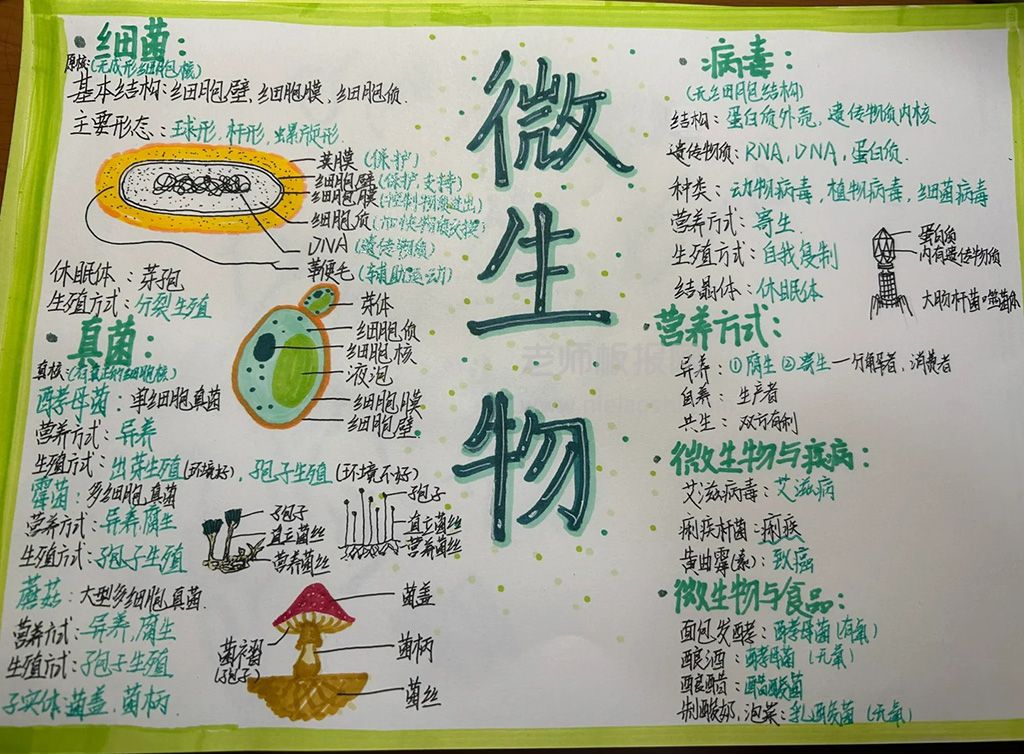 细菌:
原核:(无成形细胞核)
基本结构:细胞壁、细胞膜、细胞质
主要形态:球形,杆形,螺旋形
荚膜(保护)
细胞壁(保护,支持)
细胞膜(控制物质进出)
细胞质(加快物质交换)
DNA(遗传物质)
鞭毛(辅助运动)
休眠体:芽孢
生殖方式:分裂生殖
真菌:
真核:(有真正的细胞核)
酵母菌:单细胞真菌
营养方式:异养
生殖方式:出芽生殖(环境好),孢子生殖(环境不好)
芽体
细胞质
细胞核
液泡
细胞膜
细胞壁
霉菌:多细胞真菌
营养方式:异养,腐生
生殖方式:孢子生殖
孢子
直立菌丝
营养菌丝
孢子
直立菌丝
营养菌丝
蘑菇:大型多细胞真菌
营养方式:异养,腐生
生殖方式:孢子生殖
子实体:菌盖、菌柄
菌盖
菌褶
(孢子)
菌柄
菌丝
微生物
病毒:
(无细胞结构)
结构:蛋白质外壳,遗传物质内核
遗传物质:RNA,DNA,蛋白质.
种类:动物病毒,植物病毒,细菌病毒
营养方式:寄生
生殖方式:自我复制
结晶体:休眠体
蛋白质
内有遗传物质
大肠杆菌噬菌体
营养方式:
异养:①腐生②寄生—分解者,消费者
自养:生产者
共生:双方有利
微生物与疾病:
艾滋病毒:艾滋病
痢疾杆菌:痢疾
黄曲霉(素):致癌
微生物与食品:
面包发酵:酵母菌(有氧)
酿酒:酵母菌(无氧)
酿醋:醋酸菌
制酸奶,泡菜:乳酸菌(无氧)
老师板报